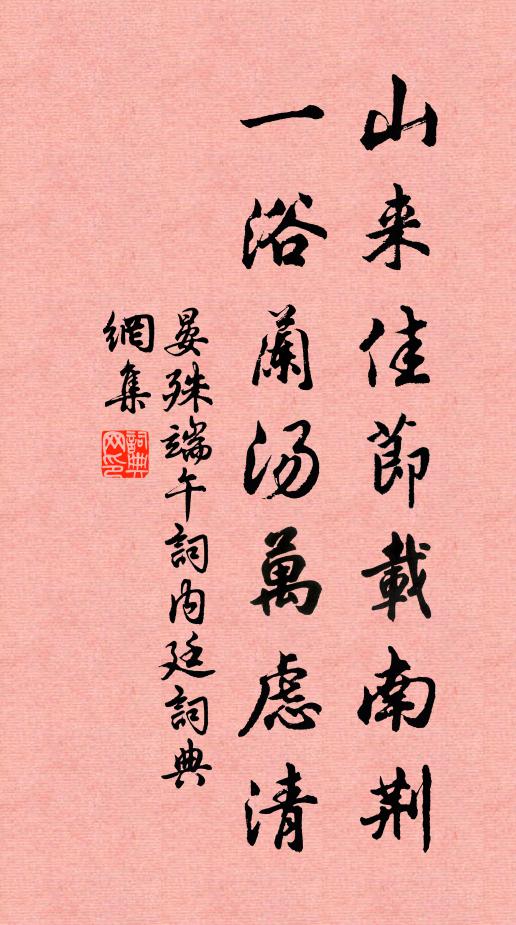 山来佳節載南荆
一浴蘭湯萬慮清
晏殊端午詞内廷詞典
網集
詞典
网印